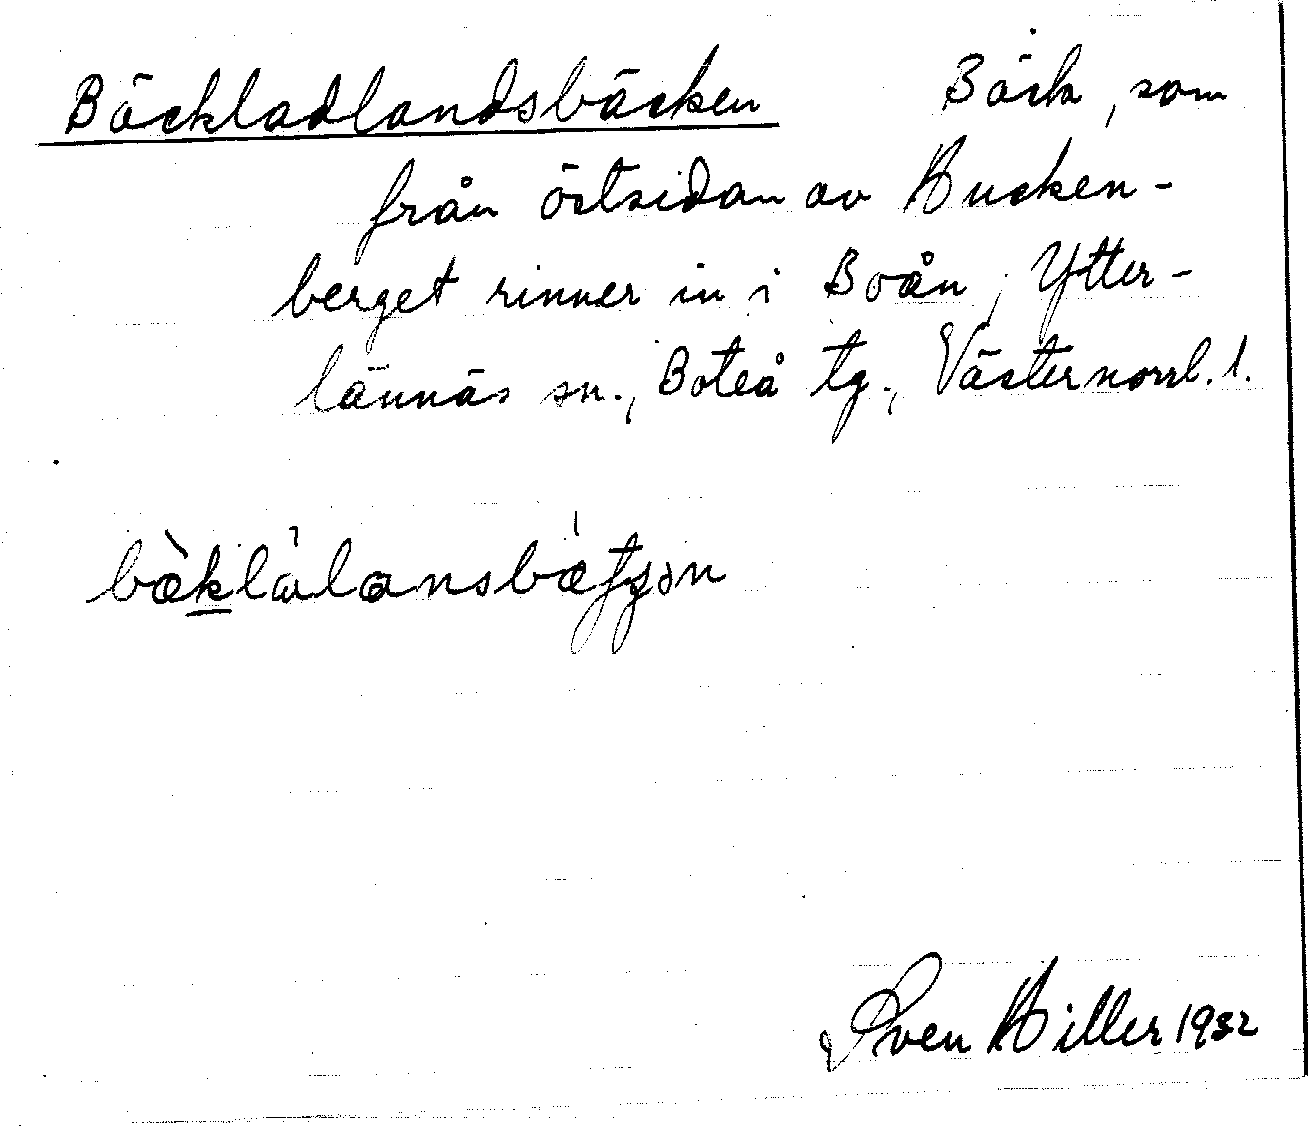 Bäckladlandsbäcken Bäck, som
från östsidan av Hucken-
berget rinner in i Boån, Ytter-
lännäs sn., Boteå tg., Västernorrl. l.
bæ̀klàlansbætʃən
Sven Hiller 1932